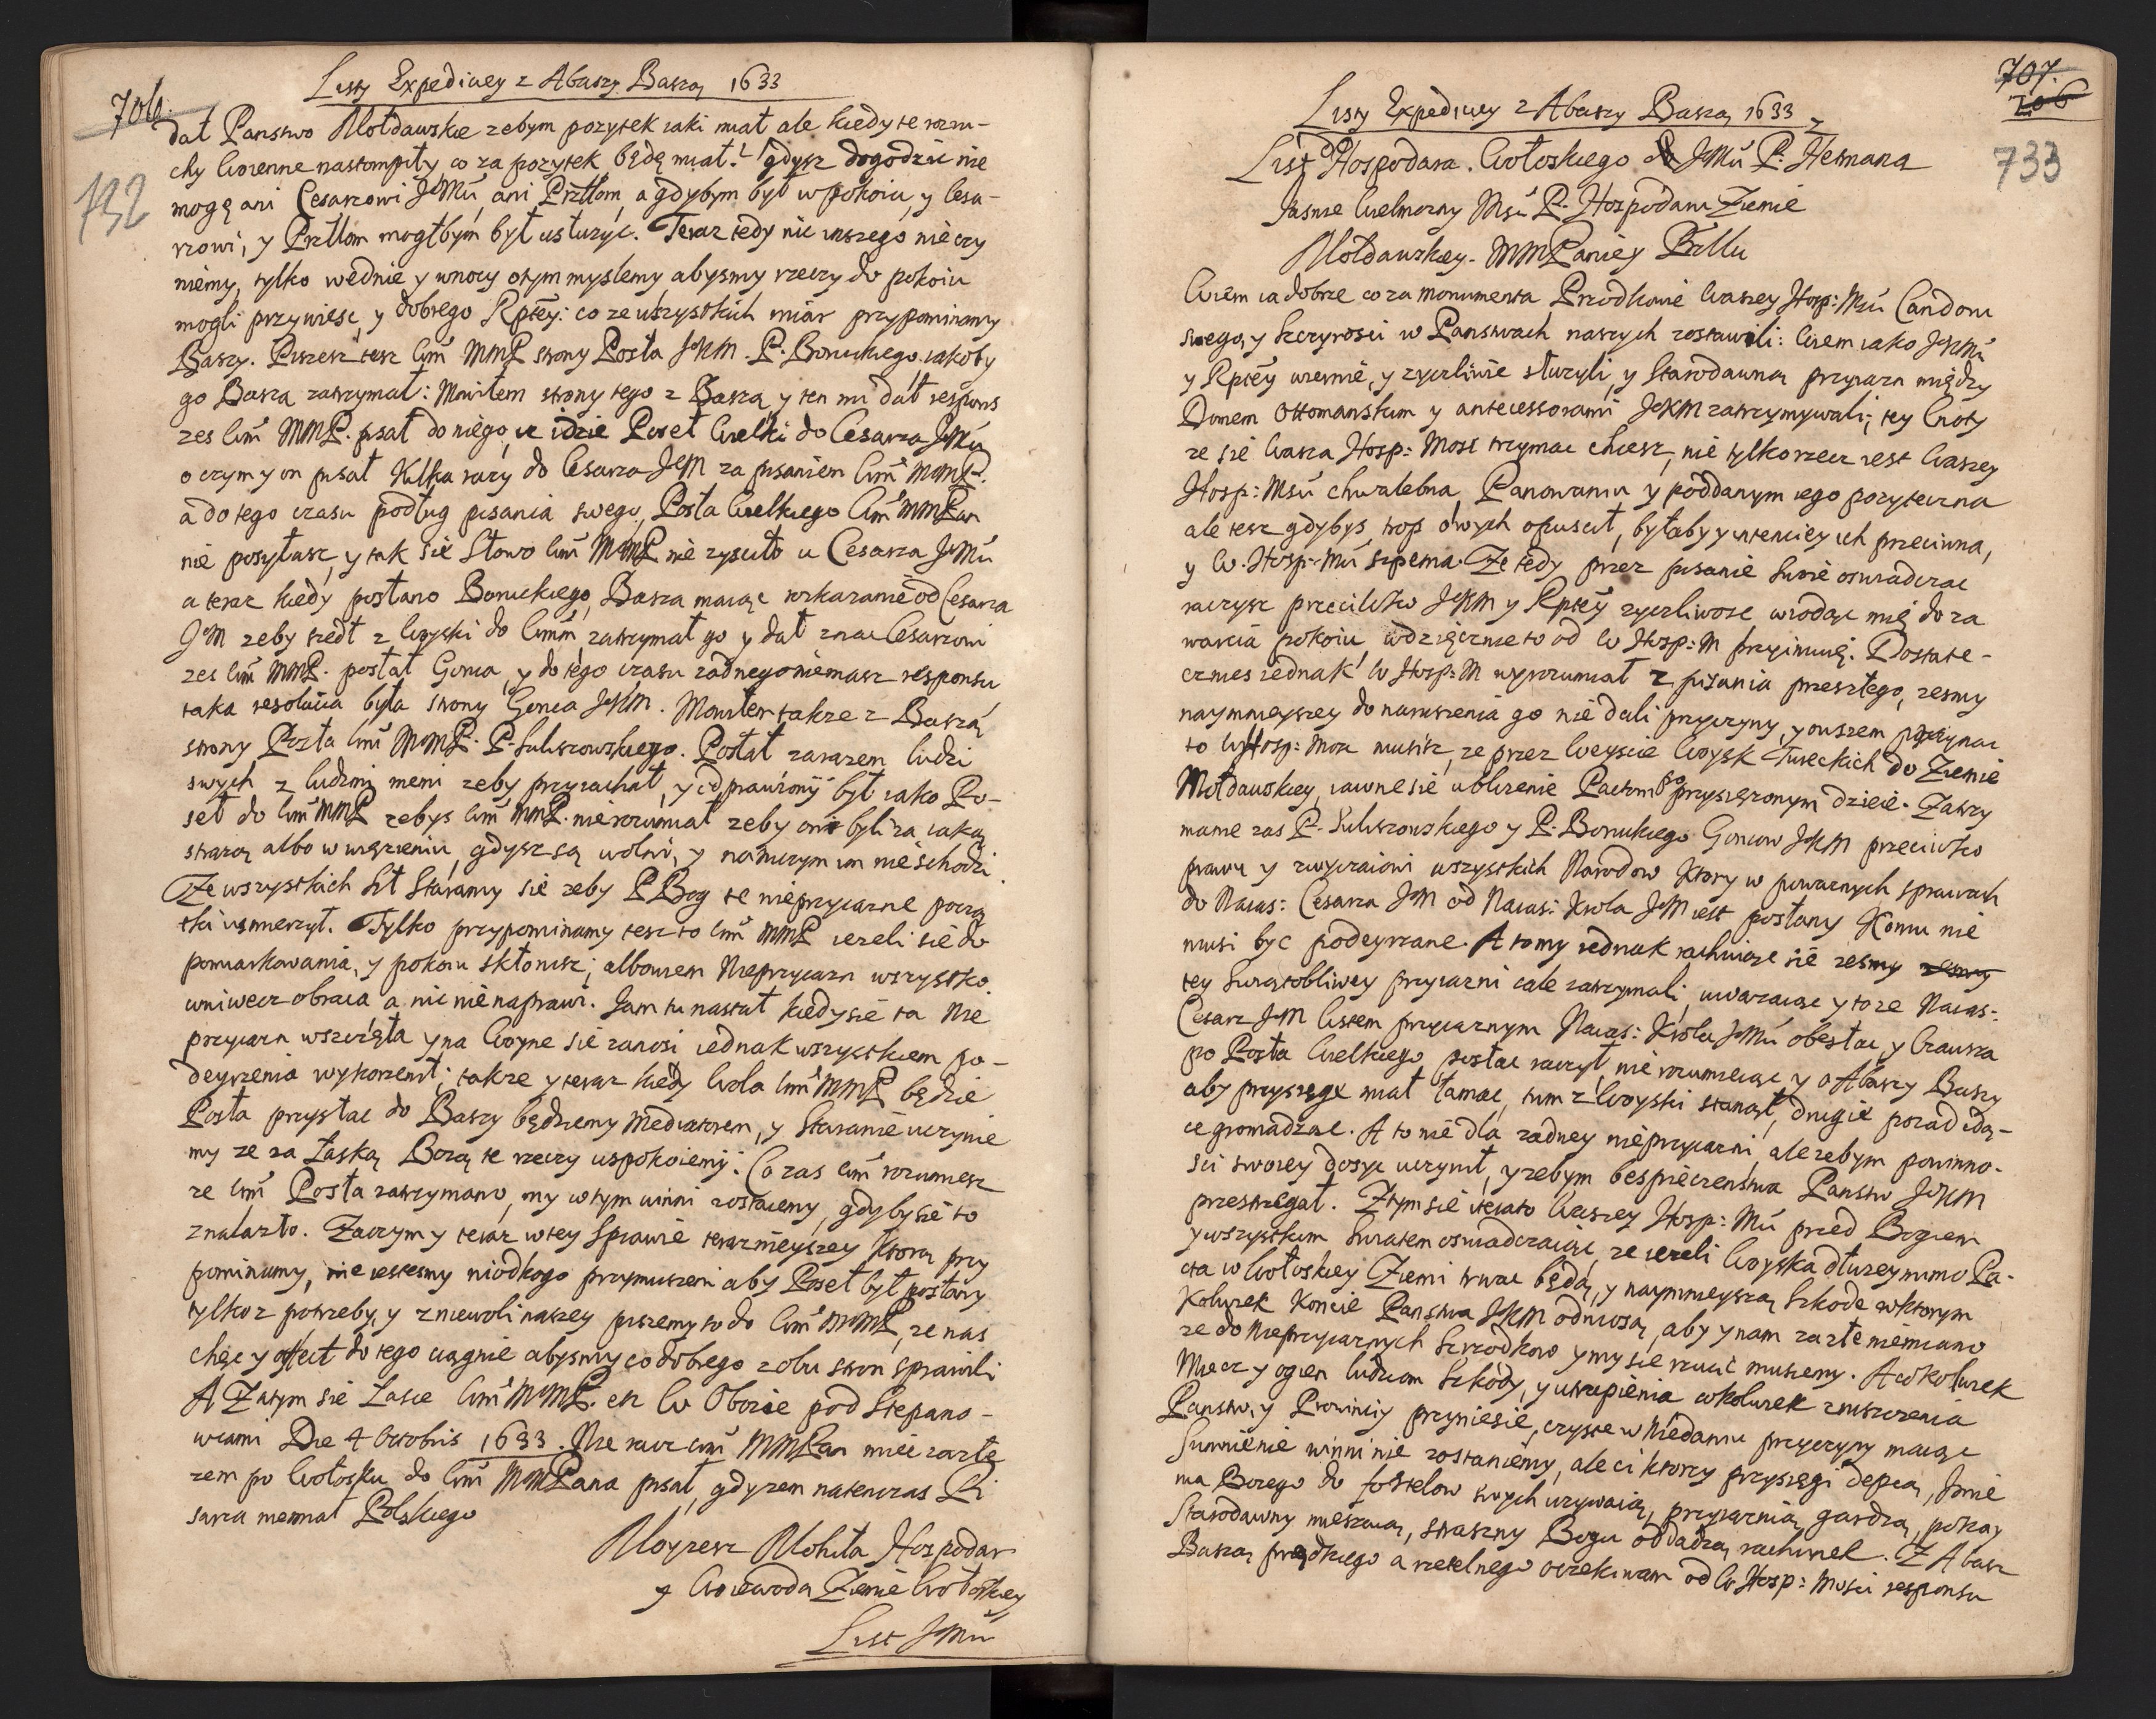 Listy Expediciey z Abaszy Baszą 1633
706.
732
dał Panstwo Mołdawskie zebym pozytek iaki miał ale kiedy te rozru-
chy Woienne nastompiły, co za pozytek będę miał? gdysz dogodzić nie
mogę ani Cesarzowi JeMu, ani Przłłom, a gdybym był w pokoiu, y Cesa-
rzowi, y Przłłom mogłbym był usłuzyć. Teraz tedy nic inszego nie czy
niemy, tylko wednie y wnocy otym myslemy abysmy rzeczy do pokoiu
mogli przywiesc, y dobrego Rptey: co ze wszystkich miar przypominamy
Baszy. Piszesz tesz WM MMP strony Posła JKM. P. Bonickiego iakoby
go Basza zatrzymał: Mowiłem strony tego z Baszą y ten mi dał respons
zes WM MMP. pisał do niego ze idzie Poseł Wielki do Cesarza JeMu
o czym y on pisał kilka razy do Cesarza JeM za pisaniem WM MMP.
a do tego czasu podług pisania swego, Posła Wielkiego WM MMPan
nie posyłasz, y tak sie słowo WM MMP nie zysciło u Cesarza JeMu
a teraz kiedy posłano Bonickiego, Basza maiąc roskazanie od Cesarza
JeM zeby szedł z Woyski do Wmm, zatrzymał go y dał znac Cesarzowi
zes WM MMP. posłał Gonca, y do tego czasu zadnego niemasz responsu
taka resolucia była strony Gonca JKM. Mowiłem takze z Baszą
strony Posła WM MMP. P. Suliszowskiego. Posłał zarazem ludzi
swych z ludzmi memi zeby przyiachał, y odprawiony był iako Po-
seł do WM MMP zebys WM MMP. nierozumiał zeby oni byli za iaką
strazą albo w więzieniu, gdysz są wolni, y na niczym im nie schodzi
Ze wszystkich Sił Staramy sie zeby P. Bog te nieprzyiazne począ
tki usmierzył. Tylko przypominamy tesz to WM MMP iezeli sie do
pomiarkowania, y pokoiu skłonisz; albowiem Nieprzyiazn wszystko
wniwecz obraca a nic nie naprawi. Jam tu nastał kiedy sie ta Nie
przyiazn wszczęła y na Woyne sie zanosi iednak wszystkiem po-
deyrzenia wykorzenił; takze y teraz kiedy Wola WM MMP będzie
Posła przysłac do Baszy będziemy Mediatorem, y Staranie uczynie
my ze za Łaską Bozą te rzeczy uspokoiemy. Co zas WM rozumiesz
ze WM Posła zatrzymano, my w tym winni zostaiemy, gdyby sie to
znalazło. Zaczym y teraz w tey Sprawie teraznieyszey ktorą przy
pominamy, nie iestesmy niodkogo przymuszeni aby Poseł był posłany
tylko z potrzeby, y z niewoli naszey piszemy to do WM MMP, ze nas
chęc y affect do tego ciągnie abysmy co dobrego z obu stron sprawili
A Zatym sie Łasce WM MMP. etc W Obozie pod Stepano-
wcami Die 4 Octobris 1633. Nie racz WM MMPan miec zazłe
zem po Wołosku do WM MMPana pisał, gdyzem natenczas Pi
sarza niemiał Polskiego
Moyzesz Mohiła Hospodar
y Woiewoda Ziemie Wołoskiey
List JeMu
707.
706
733
Listy Expediciey z Abaszy Baszą 1633
List do Hospodara Wołoskiego JeMu P. Hetmana
Jasnie Wielmozny Msci P. Hospodaru Ziemie
Mołdawskiey. MMPaniey Przłłu
Wiem ia dobrze co za monumenta Przodkowie Waszey Hosp: Mci Candoru
swego, y szczyrosci w Panstwach naszych zostawili: Wiem iako JKMci
y Rptey wiernie, y zyczliwie słuzyli, y Starodawną przyiazn między
Domem Ottomanskim y antecessorami JKM zatrzymywali; tey Cnoty
ze sie Wasza Hosp: Mosc trzymac chcesz, nie tylko rzecz iest Waszey
Hosp: Msci chwalebna, Panowaniu y poddanym iego pozyteczna
ale tesz gdybys trop owych opuscił, byłaby y intenciey ich przeciwna,
y W. Hosp: Mci szpetna. Ze tedy przez pisanie Swoie oswiadczac
raczysz przeciwko JKM y Rptey zyczliwosc wiodąc mię do za
warcia pokoiu, wdzięcznie to od W Hosp: M przyimuię. Dostate-
cznies iednak W Hosp: M wyrozumiał z pisania przeszłego, zesmy
naymnieyszey do naruszenia go nie dali przyczyny, y owszem przyznac
to W Hosp: Mosc musisz, ze przez Weyscie Woysk Tureckich do Ziemie
Mołdawskiey, iawne sie ublizenie Pactom poprzysięzonym dzieie. Zatrzy
manie zas P. Suliszowskiego y P. Bonickiego Goncow JKM przeciwko
prawu y zwyczaiowi wszystkich Narodow ktory w powaznych sprawach
do Naias: Cesarza JeM od Naias: Krola JeM iest posłany Komu nie
musi byc podeyrzane. A to my iednak rachuiąc sie zesmy zesmy
tey Swiątobliwey przyiazni cale zatrzymali, uwazaiąc y to ze Naias:
Cesarz JeM listem przyiaznym Naias: Krola JeMci obesłac, y Czausza
po Posła Wielkiego posłac raczył, nie rozumieiąc y o Abaszy Baszy
aby przysięge miał łamac, tum z Woyski stanął, drugie pozad idą-
ce gromadząc. A to nie dla zadney nieprzyiazni, ale zebym powinno-
sci swoiey dosyc uczynił, y zebym bespieczenstwa Panstw JKM
przestrzegał. Ztym sie iterato Waszey Hosp: Mci przed Bogiem
y wszystkim Swiatem oswiadczaiąc, ze iezeli Woyska dłuzey mimo Pa-
cta w Wołoskiey Ziemi trwac będą, y naymnieyszą Szkode w ktorym
Kolwiek Koncie Panstwa JKM odniosą, aby y nam zazłe niemiano
ze do Nieprzyiaznych Srzodkow y my sie rzucic musiemy. A cokolwiek
Miecz y ogien ludziom Szkody, y utrapienia cokolwiek zniszczenia
Panstw, y Prowinciy przyniesie, czyste w Niedaniu przyczyny maiąc
Sumnienie winni nie zostaniemy, ale ci ktorzy przysięgi depcą, Imie
nia Bozego do fortelow swych uzywaią, przyiaznią gardzą, pokoy
Starodawny mieszaią, straszny Bogu oddadzą rachunek. Z Abasz
Baszą prędkiego a rzetelnego oczekiwam od W Hosp: Mosci responsu